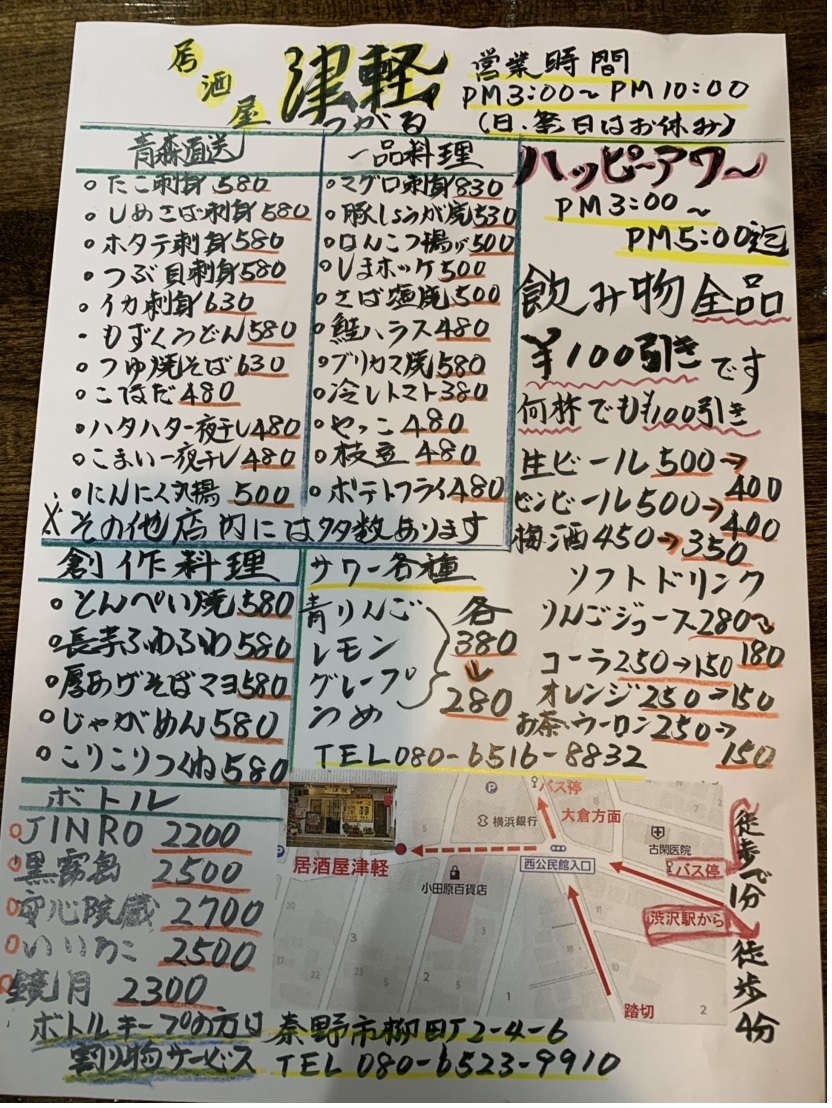 居酒屋 津軽
つがる
営業時間
PM3:00〜PM10:00
(日・祭日はお休み)
青森直送
○たこ刺身 580
○しめさば刺身 580
○ホタテ刺身 580
○つぶ貝刺身 580
○イカ刺身 630
・もずくうどん 580
○つゆ焼そば 630
○こはだ 480
○ハタハタ一夜干し 480
○こまい一夜干し 480
○にんにく丸揚 500
一品料理
○マグロ刺身 830
○豚しょうが焼 530
○はんこつ揚げ 500
○しまホッケ 500
○さば塩焼 500
○鮭ハラス 480
○ブリカマ焼 580
○冷しトマト 380
○やっこ 480
○枝豆 480
○ポテトフライ 480
※その他店内には多数あります
ハッピーアワー
PM3:00〜
PM5:00迄
飲み物全品
¥100引きです
何杯でも¥100引き
生ビール 500→400
ビンビール 500→400
梅酒 450→350
ソフトドリンク
りんごジュース 280→180
コーラ 250→150
オレンジ 250→150
お茶・ウーロン 250→150
創作料理
○とんぺい焼 580
○長芋ふわふわ 580
○厚あげそばマヨ 580
○じゃがめん 580
○こりこりつくね 580
サワー各種
青りんご
レモン
グレープ
うめ
各
380
↓
280
TEL 080-6516-8832
ボトル
○JINRO 2200
○黒霧島 2500
○安心院蔵 2700
○いいちこ 2500
○鏡月 2300
ボトルキープの方は
割り物サービス
バス停
横浜銀行
大倉方面
古関医院
居酒屋津軽
西公民館入口
バス停
小田原百貨店
渋沢駅から
踏切
20
17
3
3
2
5
5
1
2
徒歩で1分
徒歩4分
秦野市柳町2-4-6
TEL 080-6523-9910